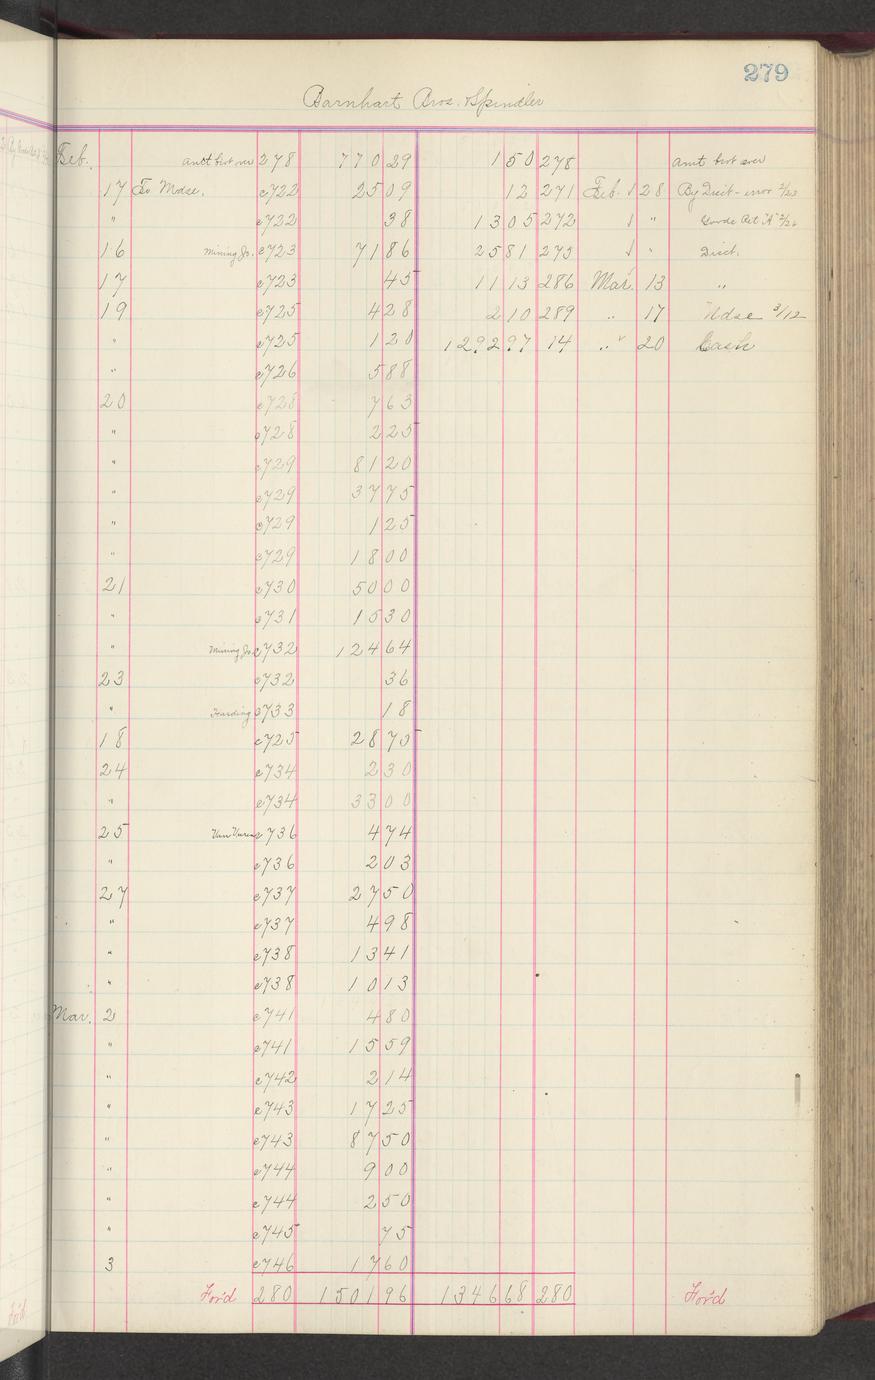 279
Barnhart Bros. & Spindler
Feb. amt brot over 278 770 29 1 50 278 amt brot over
17 To Mdse. c722 25 09 12 271 Feb. 28 By Disct - error 2/23
" c722 38 13 05 272 " Goods Ret "A" 2/26
16 Mining Jo. c723 71 86 25 81 275 " Disct.
17 c723 45 11 13 286 Mar. 13 "
19 c725 4 28 2 10 289 " 17 Mdse 3/12
" c725 1 20 1292 97 14 " 20 Cash
" c726 5 88
20 c728 7 63
" c728 2 25
" c729 81 20
" c729 37 75
" c729 1 25
" c729 18 00
21 c730 50 00
" c731 15 30
" Mining Jo. c732 124 64
23 c732 36
" Harding c733 18
18 c725 28 75
24 c734 2 30
" c734 33 00
25 c736 4 74
" c736 2 03
27 c737 27 50
" c737 4 98
" c738 13 41
" c738 10 13
Mar. 2 c741 4 80
" c741 15 59
" c742 2 14
" c743 17 25
" c743 87 50
" c744 9 00
" c744 2 50
" c745 75
3 c746 17 60
For'd 280 1501 96 1346 68 280 For'd